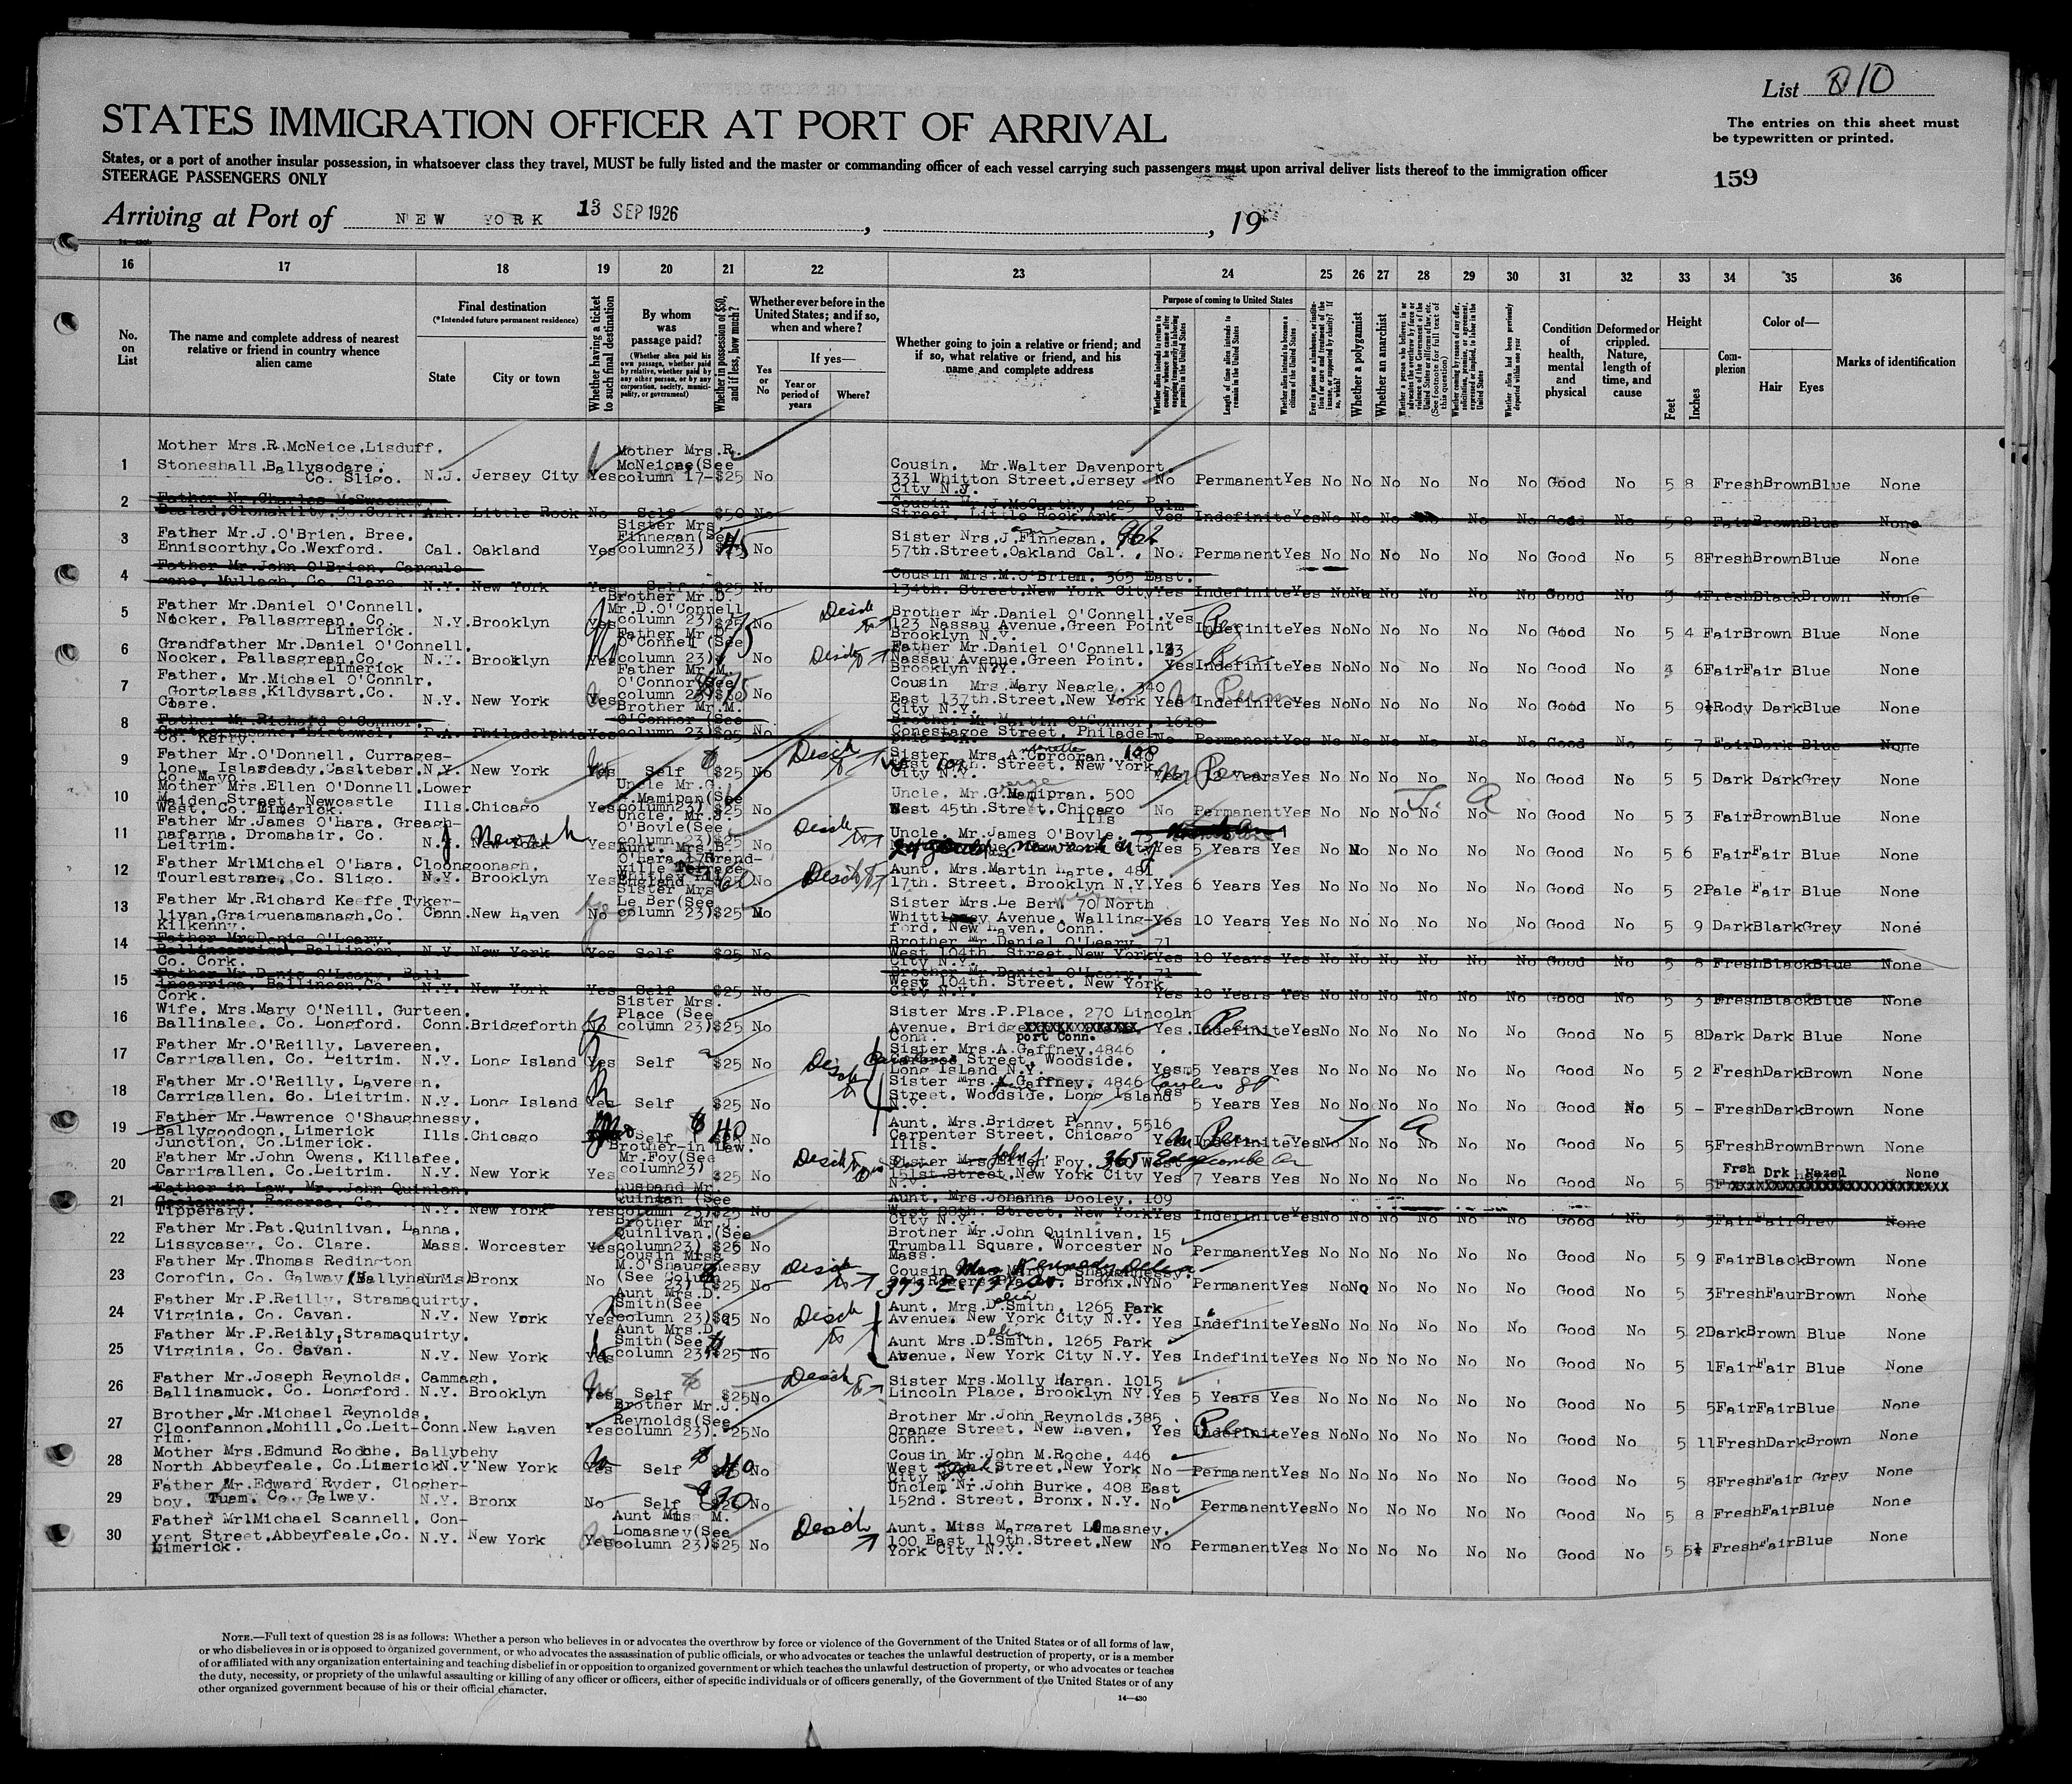 List 10
STATES IMMIGRATION OFFICER AT PORT OF ARRIVAL
The entries on this sheet must
be typewritten or printed.
States, or a port of another insular possession, in whatsoever class they travel, MUST be fully listed and the master or commanding officer of each vessel carrying such passengers must upon arrival deliver lists thereof to the immigration officer
STEERAGE PASSENGERS ONLY
159
Arriving at Port of NEW YORK 13 SEP 1926 , , 19
16 17 18 19 20 21 22 23 24 25 26 27 28 29 30 31 32 33 34 35 36
No. on List
The name and complete address of nearest relative or friend in country whence alien came
Final destination
(*Intended future permanent residence)
State
City or town
Whether having a ticket to such final destination
By whom was passage paid?
(Whether alien paid his own passage, whether paid by relative, whether paid by any other person, or by any corporation, society, municipality, or government)
Whether in possession of $50, and if less, how much?
Whether ever before in the United States; and if so, when and where?
Yes or No
If yes—
Year or period of years
Where?
Whether going to join a relative or friend; and if so, what relative or friend, and his name and complete address
Purpose of coming to United States
Length of time alien intends to remain in the United States
Whether alien intends to become a citizen of the United States
Whether a polygamist
Whether an anarchist
Whether alien had been previously deported within one year
Condition of health, mental and physical
Deformed or crippled. Nature, length of time, and cause
Height
Feet
Inches
Complexion
Color of—
Hair
Eyes
Marks of identification
1 Mother Mrs.R.McNeice,Lisduff. Stoneshall.Ballysodare. Co. Sligo. N.J. Jersey City Yes Mother Mrs.R. McNeice(See column 17- $25 No Cousin. Mr.Walter Davenport. 331 Whitton Street.Jersey City N.J. No Permanent Yes No No No No No No Good No 5 8 Fresh Brown Blue None
2 Father Mr.Charles McSweeney. Clonakilty.Co.Cork. Ark. Little Rock No Self $50 No Cousin Mr.J.McCarthy. 425 Palm Street. Little Rock.Ark Yes Indefinite Yes No No No No No Good No 5 8 Fair Brown Blue None
3 Father Mr.J.O'Brien. Bree. Enniscorthy.Co.Wexford. Cal. Oakland Yes Sister Mrs. Finnegan(See column23) 45 No Sister Mrs.J.Finnegan. 962 57th.Street.Oakland Cal. No. Permanent Yes No No No No No No Good No 5 8 Fresh Brown Blue None
4 Father Mr.John O'Brien. Mullagh. Co. Clare. N.Y. New York Yes Self $25 No Cousin Mrs.M.O'Brien. 365 East. 134th. Street.New York City Yes Indefinite Yes No No No No No No Good No 5 4 Fresh Black Brown None
5 Father Mr.Daniel O'Connell. Nocker. Pallasgrean. Co. Limerick. N.Y. Brooklyn Yes Brother Mr.D. Mr.D.O'Connell column 23) $25 75 No Desch to Brother Mr.Daniel O'Connell. 123 Nassau Avenue.Green Point Brooklyn N.Y. yes Indefinite Yes No No No No No No Good No 5 4 Fair Brown Blue
6 Grandfather Mr.Daniel O'Connell. Nocker. Pallasgrean.Co. Limerick N.Y. Brooklyn Yes Father Mr.D. O'Connel (See column 23) No Desch to Father Mr.Daniel O'Connell.123 Nassau Avenue.Green Point. Brooklyn N.Y. Yes Indefinite Yes No No No No No No Good No 4 6 Fair Fair Blue None
7 Father. Mr.Michael O'Connlr. Gortglass.Kildysart.Co. Clare. N.Y. New York Yes Father Mr.M. O'Connor(See column 23) No Cousin Mrs.Mary Neagle. 340 East 137th.Street.New York City N.Y. Yes Indefinite Yes No No No No No No Good No 5 9½ Rody Dark Blue None
8 Father Mr.Richard O'Connor. Listowel. Co. Kerry. P.A. Philadelphia Yes Brother Mr.M. O'Connor (See column 23) $25 No Brother Mr.Martin O'Connor. 1610 Conestagoe Street. Philadelphia P.A. No Permanent Yes No No No No No No Good No 5 7 Fair Dark Blue None
9 Father Mr.O'Donnell. Currageslone. Islasdeady.Casltebar. Co. Mayo. N.Y. New York Yes Self $25 No Desch to Sister Mrs.A.Corcoran. 108 East Street. New York City N.Y. Yes Years Yes No No No No No No Good No 5 5 Dark Dark Grey None
10 Mother Mrs.Ellen O'Donnell.Lower Maiden Street. Newcastle West. Co. Limerick. Ills. Chicago Yes Uncle Mr.G. Mamipan(See column23) $25 No Uncle. Mr.G.Mamipran. 500 West 45th.Street.Chicago Ills No Permanent Yes No No No No No No Good No 5 3 Fair Brown Blue None
11 Father Mr.James O'Hara. Greaghnafarna. Dromahair. Co. Leitrim. N.Y. New York Newark Yes Uncle. Mr.J. O'Boyle(See column 23) $25 Desch to Uncle. Mr.James O'Boyle. 73 Newark N J Yes 5 Years Yes No No No No No No Good No 5 6 Fair Fair Blue None
12 Father MrlMichael O'Hara. Cloongoonagh. Tourlestrane. Co. Sligo. N.Y. Brooklyn Yes Aunt. Mrs.B. O'Hara.17Grandville England. 60 No Desch to Aunt. Mrs.Martin Harte. 481 17th. Street. Brooklyn N.Y. Yes 6 Years Yes No No No No No No Good No 5 2 Pale Fair Blue None
13 Father Mr.Richard Keeffe.Tykerlivan.Graiguenamanagh.Co. Kilkenny. Conn. New Haven No Sister Mrs Le Ber(See column 23) $25 No Sister Mrs.Le Ber. 70 North Avenue. Wallingford. New Haven. Conn. Yes 10 Years Yes No No No No No No Good No 5 9 Dark Blark Grey None
14 Father Mr.Denis O'Leary. Ballineen. Co. Cork. N.Y. New York Yes Self $25 No Brother Mr.Daniel O'Leary. 71 West 104th. Street.New York City N.Y. Yes 10 Years Yes No No No No No No Good No 5 8 Fresh Black Blue None
15 Father Mr.Denis O'Leary. Ballincarriga. Ballineen.Co. Cork. N.Y. New York Yes Self $25 No Brother Mr.Daniel O'Leary. 71 West 104th. Street. New York City N.Y. Yes 10 Years Yes No No No No No No Good No 5 3 Fresh Black Blue None
16 Wife. Mrs.Mary O'Neill. Gurteen. Ballinalee. Co. Longford. Conn. Bridgeforth No Sister Mrs. Place (See column 23) $25 No Sister Mrs.P.Place. 270 Lincoln Avenue. Bridge XXXXXXXXXXXXX port Conn. Conn. Yes. Indefinite Yes No No No No No No Good No 5 8 Dark Dark Blue None
17 Father Mr.O'Reilly. Lavereen. Carrigallen. Co. Leitrim. N.Y. Long Island Yes Self $25 No Desch to Sister Mrs.A.Gaffney.4846 Street. Woodside. Long Island N.Y. Yes 5 Years Yes No No No No No No Good No 5 2 Fresh Dark Brown None
18 Father Mr.O'Reilly. Lavereen. Carrigallen. Co. Lieitrim. N.Y. Long Island Yes Self $25 No Sister Mrs.A.Gaffney. 4846 Street. Woodside. Long Island N.Y. Yes 5 Years Yes No No No No No No Good No 5 - Fresh Dark Brown None
19 Father Mr.Lawrence O'Shaughnessy. Ballygodoon. Limerick Junction. Co.Limerick. Ills. Chicago Self 40 No Aunt. Mrs.Bridget Penny. 5516 Carpenter Street. Chicago Ills. Yes Indefinite Yes No No No No No No Good No 5 5 Fresh Brown Brown None
20 Father Mr.John Owens. Killafee. Carrigallen. Co.Leitrim. N.Y. New York Yes Brother-in Law. Mr.Foy(See column23) $25 No Desch to Sister Mrs Ellen Foy. 365 West Edgecombe Av 151st.Street.New York City N.Y. Yes 7 Years Yes No No No No No No Good No 5 5 Frsh Drk Hazel None XXXXXXXXXXXXXXXXXXXX
21 Father in Law. Mr. John Quinlan. Roscrea. Co. Tipperary. N.Y. New York Yes Husband Mr. Quinlan (See column 23) $25 No Aunt. Mrs.Johanna Dooley. 109 West 88th. Street. New York City N.Y. Yes Indefinite Yes No No No No No No Good No 5 3 Fair Fair Grey None
22 Father Mr.Pat.Quinlivan. Lanna. Lissycasey. Co. Clare. Mass. Worcester Yes Brother Mr.J. Quinlivan.(See column23) $25 No Brother Mr.John Quinlivan. 15 Trumball Square. Worcester Mass. No Permanent Yes No No No No No No Good No 5 9 Fair Black Brown None
23 Father Mr.Thomas Redington Corofin. Co. Galway(Ballyhaunis) Bronx No Cousin Miss M.O'Shaughnessy (See Column 23) $25 No Desch to Cousin Mary O'Shaughnessy. Mrs Kennedy 373 E. Bronx.NY No Permanent Yes No No No No No No Good No 5 3 Fresh Faur Brown None
24 Father Mr.P.Reilly. Stramaquirty. Virginia. Co. Cavan. N.Y. New York Yes Aunt Mrs.D. Smith(See column 23) $25 No Desch to Aunt. Mrs.D.Smith. 1265 Park Avenue. New York City N.Y. Yes Indefinite Yes No No No No No No Good No 5 2 Dark Brown Blue None
25 Father Mr.P.Reilly.Stramaquirty. Virginia. Co. Cavan. N.Y. New York Yes Aunt Mrs.D. Smith(See column 23) $25 No Aunt Mrs.D.Smith. 1265 Park Avenue. New York City N.Y. Yes Indefinite Yes No No No No No No Good No 5 1 Fair Fair Blue None
26 Father Mr.Joseph Reynolds. Cammagh. Ballinamuck. Co. Longford. N.Y. Brooklyn Yes Self $25 No Desch to Sister Mrs.Molly Haran. 1015 Lincoln Place. Brooklyn NY. Yes 5 Years Yes No No No No No No Good No 5 5 Fair Fair Blue None
27 Brother.Mr.Michael Reynolds. Cloonfannon.Mohill.Co.Leitrim. Conn. New Haven Yes Brother Mr.J. Reynolds(See column 23). 25 No Brother Mr.John Reynolds.385 Orange Street. New Haven. Conn. Yes Indefinite Yes No No No No No No Good No 5 11 Fresh Dark Brown None
28 Mother Mrs.Edmund Roche. Ballybehy North Abbeyfeale. Co.Limerick N.Y. New York Yes Self 40 No Cousin Mr.John M.Roche. 446 West Street.New York City N.Y. No Permanent Yes No No No No No No Good No 5 8 Fresh Fair Grey None
29 Father Mr.Edward Ryder. Clogherboy. Tuam. Co. Galway. N.Y. Bronx No Self 30 No Unclem Mr.John Burke. 408 East 152nd. Street. Bronx. N.Y. No Permanent Yes No No No No No No Good No 5 8 Fresh Fair Blue None
30 Father MrlMichael Scannell. Convent Street.Abbeyfeale.Co. Limerick. N.Y. New York Yes Aunt Miss M. Lomasney(See column 23) $25 No Desch Aunt. Miss Margaret Lomasney. 100 East 119th.Street.New York City N.Y. No Permanent Yes No No No No No No Good No 5 5½ Fresh Fair Blue None
NOTE.—Full text of question 28 is as follows: Whether a person who believes in or advocates the overthrow by force or violence of the Government of the United States or of all forms of law,
or who disbelieves in or is opposed to organized government, or who advocates the assassination of public officials, or who advocates or teaches the unlawful destruction of property, or is a member
of or affiliated with any organization entertaining and teaching disbelief in or opposition to organized government or which teaches the unlawful destruction of property, or who advocates or teaches
the duty, necessity, or propriety of the unlawful assaulting or killing of any officer or officers, either of specific individuals or of officers generally, of the Government of the United States or of any
other organized government because of his or their official character.
14—430